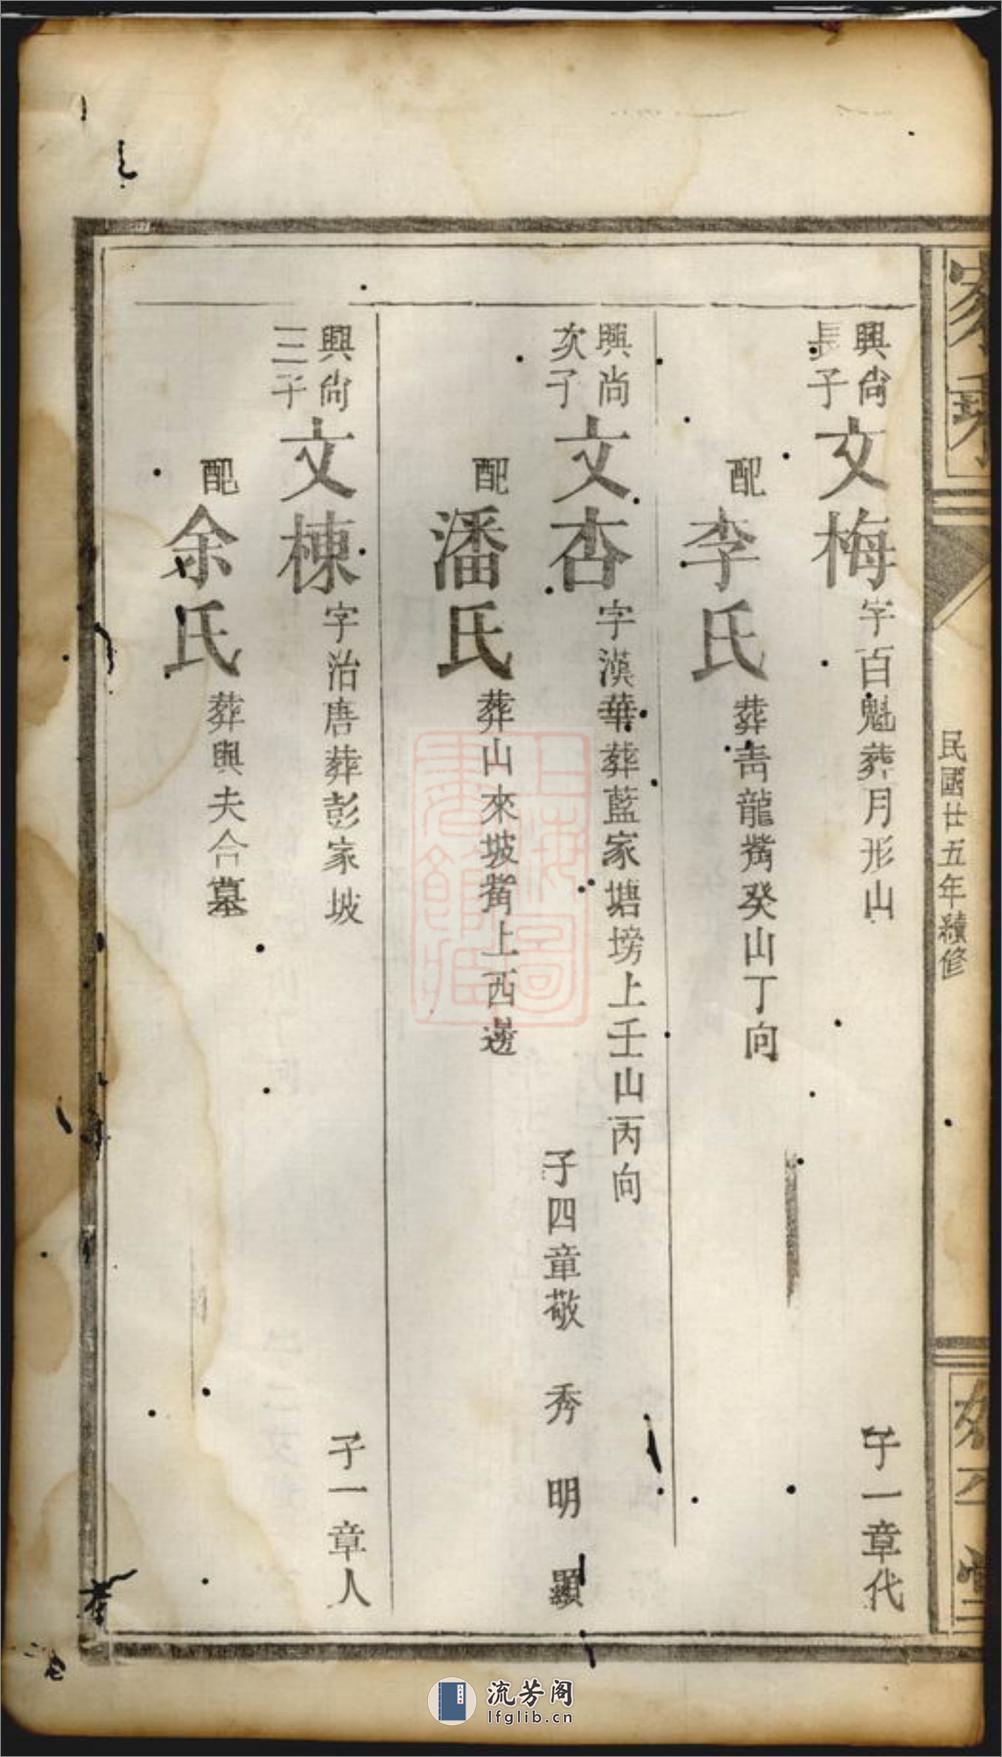 家乘
民國廿五年續修
興尚
長子
文梅
字百魁葬月形山
子一章代
配
李氏
葬青龍嘴癸山丁向
興尚
次子
文杏
字漢華葬藍家塘塝上壬山丙向
子四章敬 秀 明 顯
配
潘氏
葬山來坡嘴上西邊
興尚
三子
文棟
字治唐葬彭家坡
子一章人
配
余氏
葬與夫合墓
上海圖書館藏
流芳阁
lfglib.cn